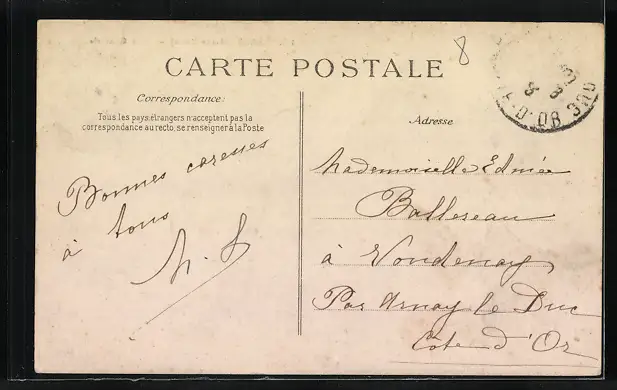 8
CARTE POSTALE
Correspondance:
Tous les pays étrangers n'acceptent pas la
correspondance au recto, se renseigner à la Poste
Bonnes caresses
à tous
Adresse
Mademoiselle Edmée
à Voudenay
Par Arnay le Duc
Côte d'Or